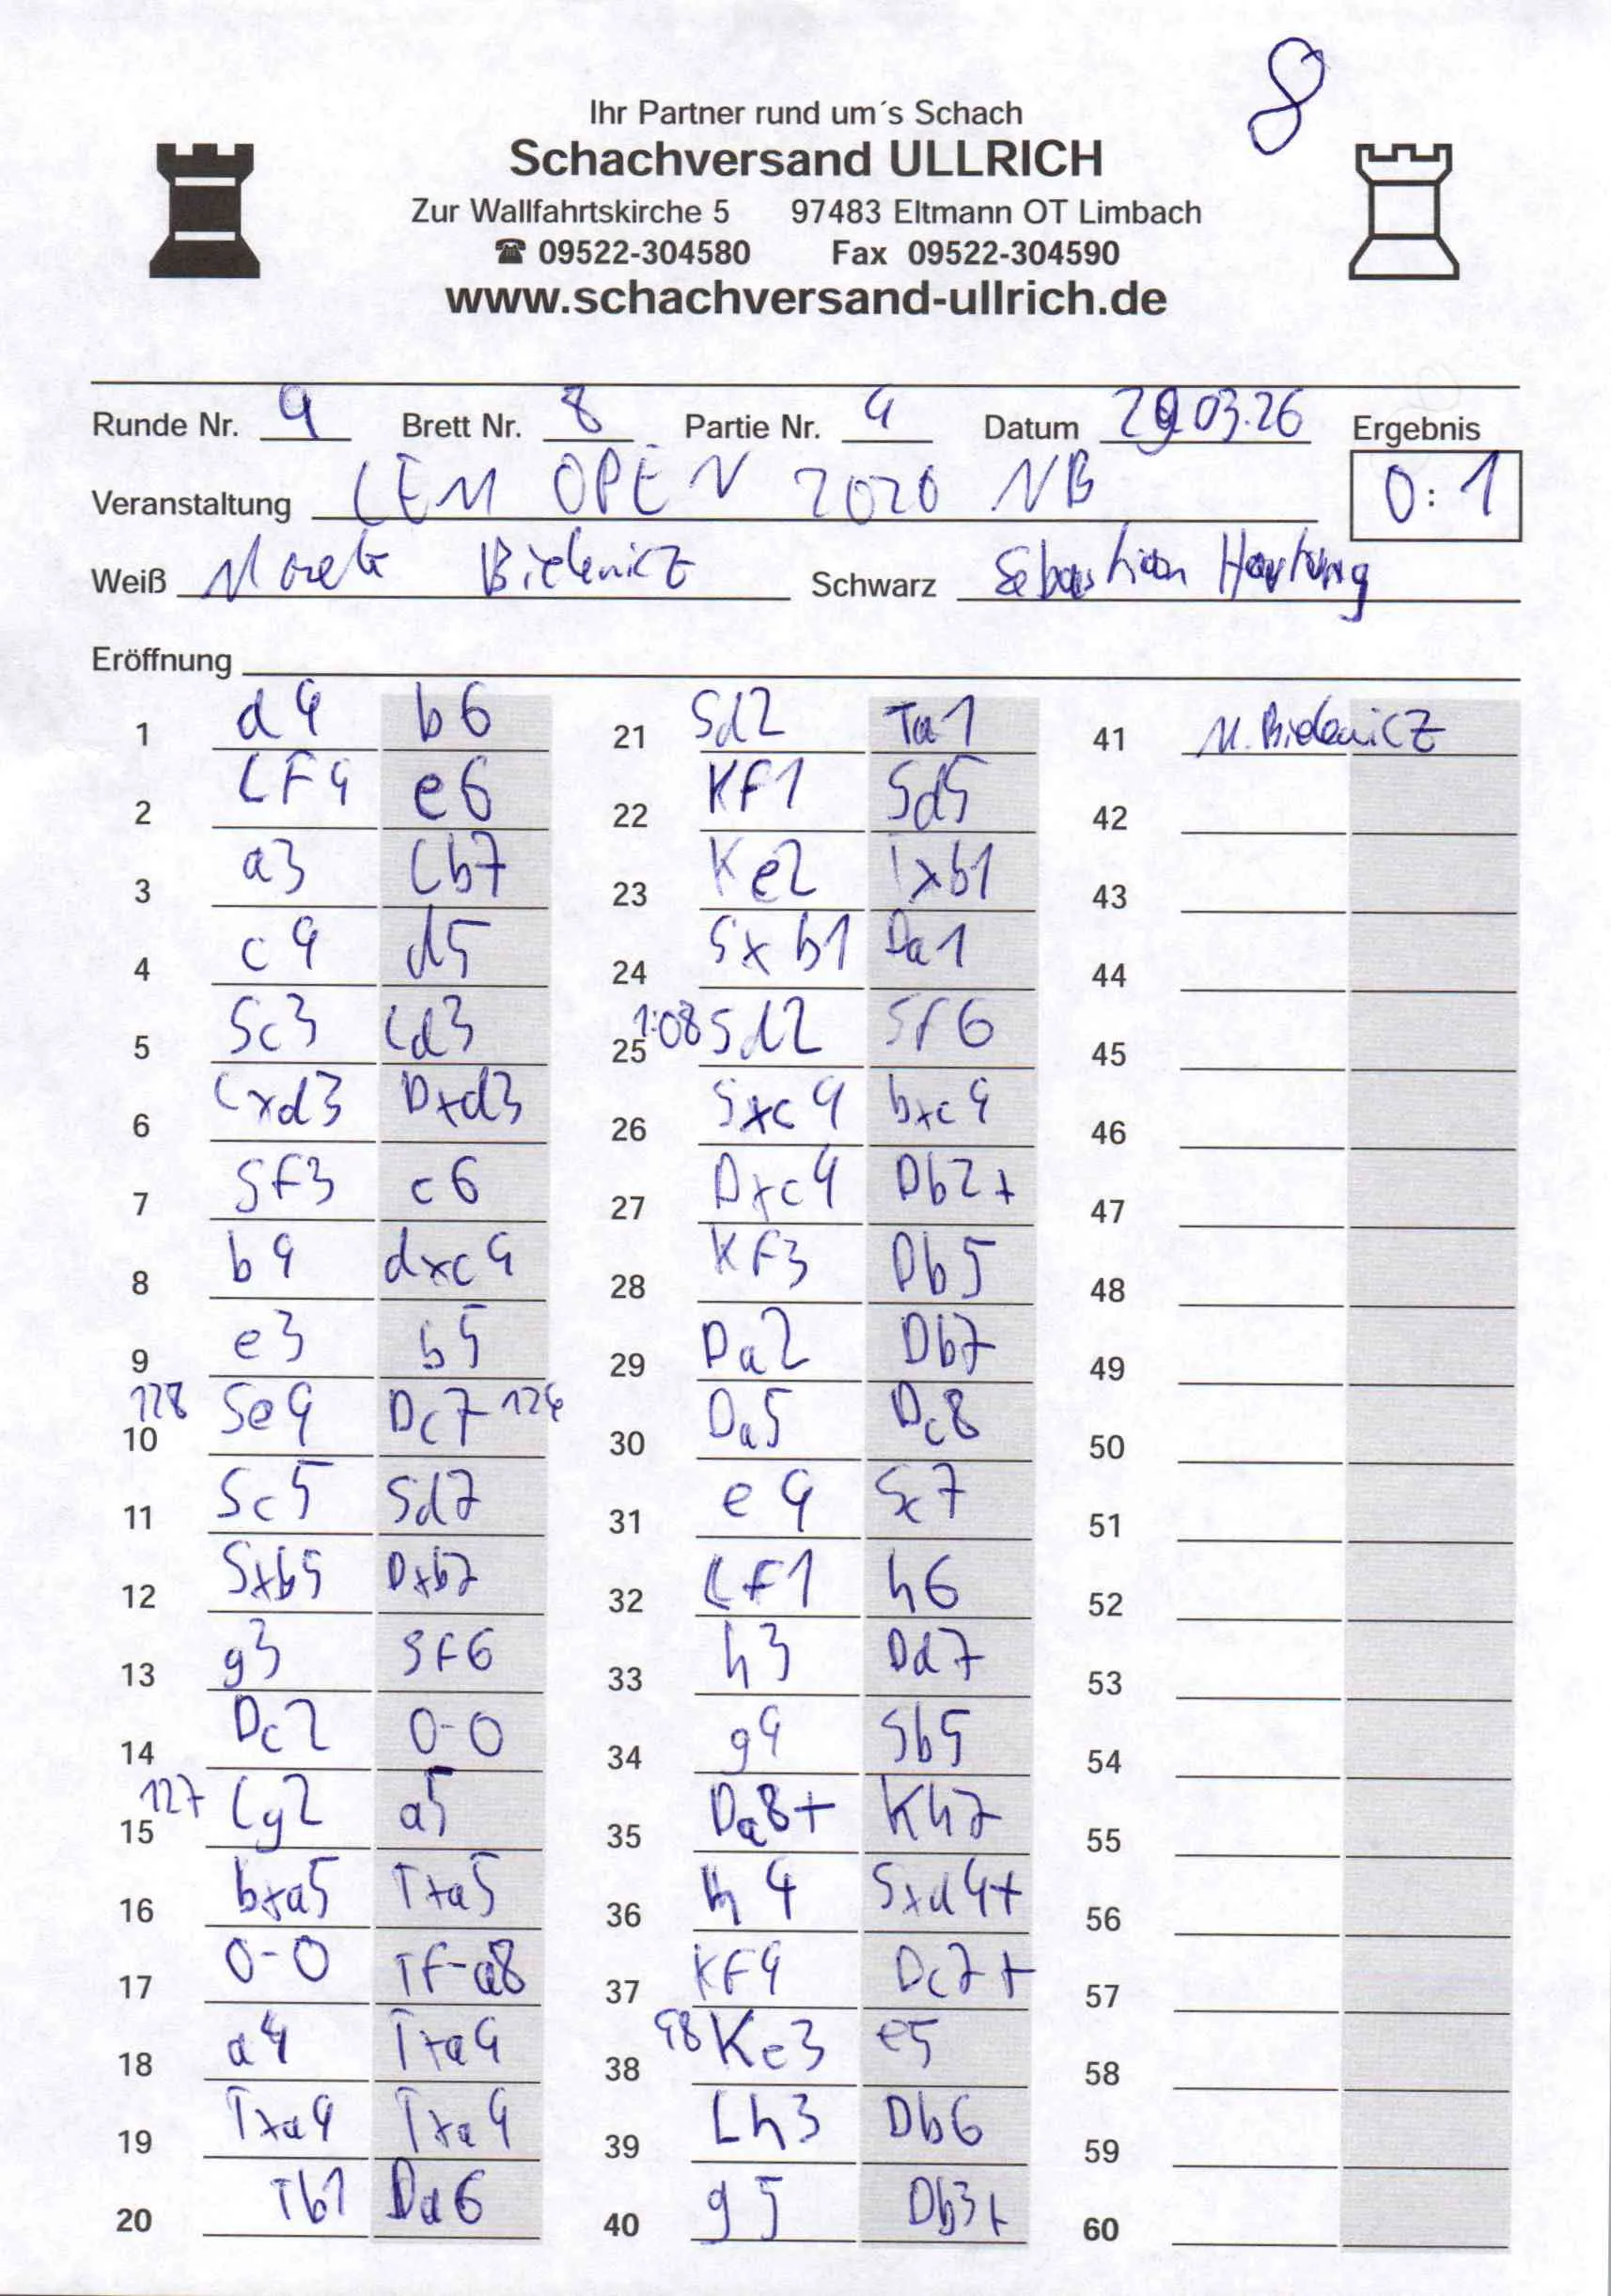 8
Ihr Partner rund um´s Schach
Schachversand ULLRICH
Zur Wallfahrtskirche 5 97483 Eltmann OT Limbach
☎ 09522-304580 Fax 09522-304590
www.schachversand-ullrich.de
Runde Nr. 4 Brett Nr. 8 Partie Nr. 4 Datum 29.03.26 Ergebnis
Veranstaltung LEM OPEN 2026 NB 0:1
Weiß Bielenicz Schwarz Sebastian Hartung
Eröffnung
1 d4 b6 21 Sd2 Ta1 41 M. Bielenicz
2 LF4 e6 22 KF1 Sd5 42
3 a3 Lb7 23 Ke2 Txb1 43
4 c4 d5 24 Sxb1 Da1 44
5 Sc3 Ld3 25 1:08 Sd2 Sf6 45
6 Lxd3 Dxd3 26 Sxc4 bxc4 46
7 SF3 c6 27 Dxc4 Db2+ 47
8 b4 dxc4 28 KF3 Db5 48
9 e3 b5 29 Da2 Db7 49
128 10 Se4 Dc7 124 30 Da5 Dc8 50
11 Sc5 Sd7 31 e4 Sc7 51
12 Sxb5 Dxb7 32 LF1 h6 52
13 g3 SF6 33 h3 Dd7 53
14 Dc2 0-0 34 g4 Sb5 54
127 15 Lg2 a5 35 Da8+ Kh7 55
16 bxa5 Txa5 36 h4 Sxd4+ 56
17 0-0 TF-a8 37 KF4 Dc7+ 57
18 a4 Txa4 38 48 Ke3 e5 58
19 Txa4 Txa4 39 Lh3 Db6 59
20 Tb1 Da6 40 g5 Db3+ 60